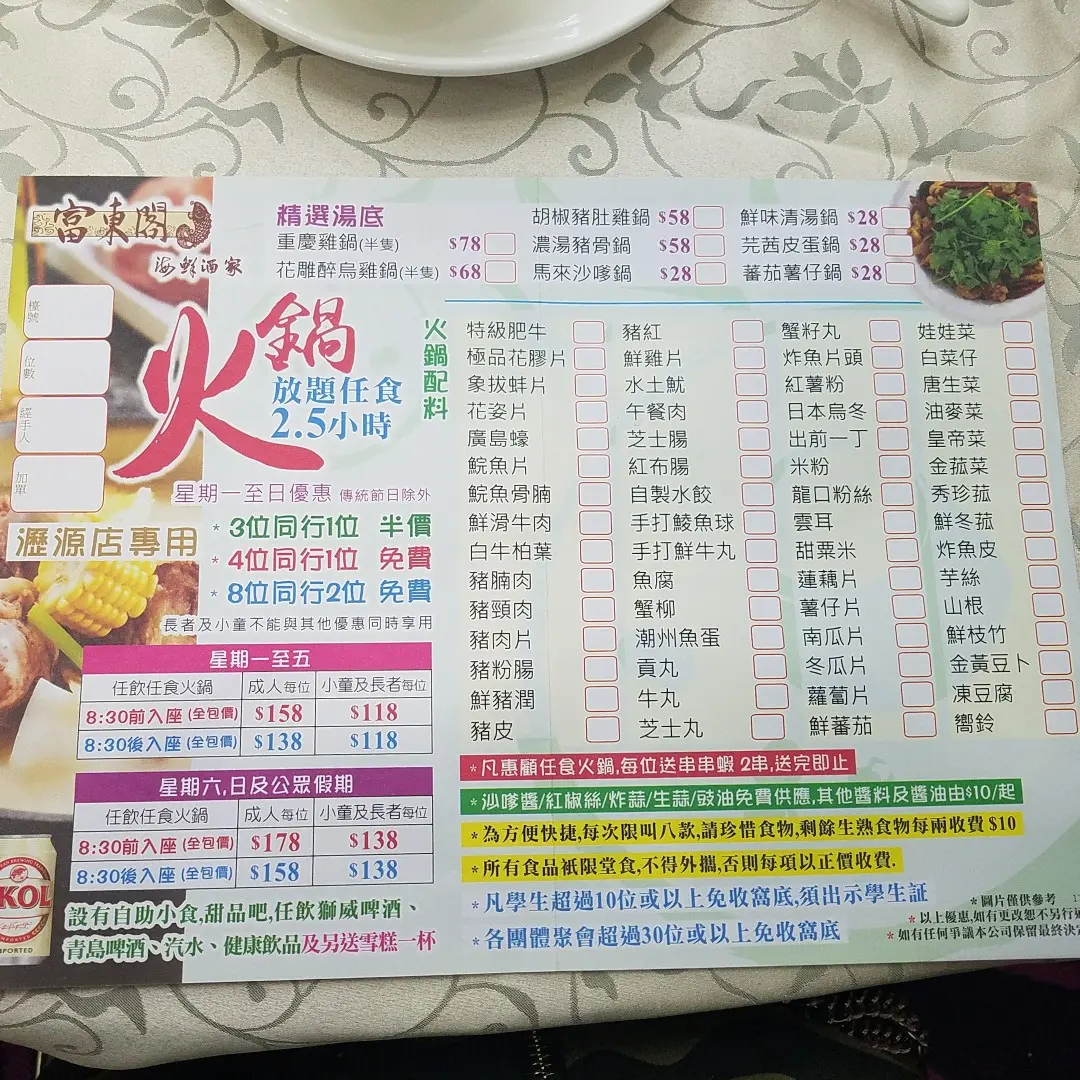 富東閣
海鮮酒家
檯號
位數
經手人
加單
瀝源店專用
精選湯底
重慶雞鍋(半隻) $78
花雕醉烏雞鍋(半隻) $68
胡椒豬肚雞鍋 $58
濃湯豬骨鍋 $58
馬來沙嗲鍋 $28
鮮味清湯鍋 $28
芫茜皮蛋鍋 $28
蕃茄薯仔鍋 $28
火鍋
放題任食
2.5小時
星期一至日優惠 傳統節日除外
* 3位同行1位 半價
* 4位同行1位 免費
* 8位同行2位 免費
長者及小童不能與其他優惠同時享用
星期一至五
任飲任食火鍋 成人每位 小童及長者每位
8:30前入座 (全包價) $158 $118
8:30後入座 (全包價) $138 $118
星期六,日及公眾假期
任飲任食火鍋 成人每位 小童及長者每位
8:30前入座 (全包價) $178 $138
8:30後入座 (全包價) $158 $138
設有自助小食,甜品吧,任飲獅威啤酒、
青島啤酒、汽水、健康飲品及另送雪糕一杯
KOL
IMPORTED
火鍋配料
特級肥牛
極品花膠片
象拔蚌片
花姿片
廣島蠔
鯇魚片
鯇魚骨腩
鮮滑牛肉
白牛柏葉
豬腩肉
豬頸肉
豬肉片
豬粉腸
鮮豬潤
豬皮
豬紅
鮮雞片
水土魷
午餐肉
芝士腸
紅布腸
自製水餃
手打鯪魚球
手打鮮牛丸
魚腐
蟹柳
潮州魚蛋
貢丸
牛丸
芝士丸
蟹籽丸
炸魚片頭
紅薯粉
日本烏冬
出前一丁
米粉
龍口粉絲
雲耳
甜粟米
蓮藕片
薯仔片
南瓜片
冬瓜片
蘿蔔片
鮮蕃茄
娃娃菜
白菜仔
唐生菜
油麥菜
皇帝菜
金菰菜
秀珍菰
鮮冬菰
炸魚皮
芋絲
山根
鮮枝竹
金黃豆卜
凍豆腐
嚮鈴
*凡惠顧任食火鍋,每位送串串蝦 2串,送完即止
*沙嗲醬/紅椒絲/炸蒜/生蒜/豉油免費供應,其他醬料及醬油由$10/起
*為方便快捷,每次限叫八款,請珍惜食物,剩餘生熟食物每兩收費 $10
*所有食品衹限堂食,不得外攜,否則每項以正價收費.
*凡學生超過10位或以上免收窩底,須出示學生証
*各團體聚會超過30位或以上免收窩底
* 圖片僅供參考
* 以上優惠,如有更改恕不另行
* 如有任何爭議本公司保留最終決